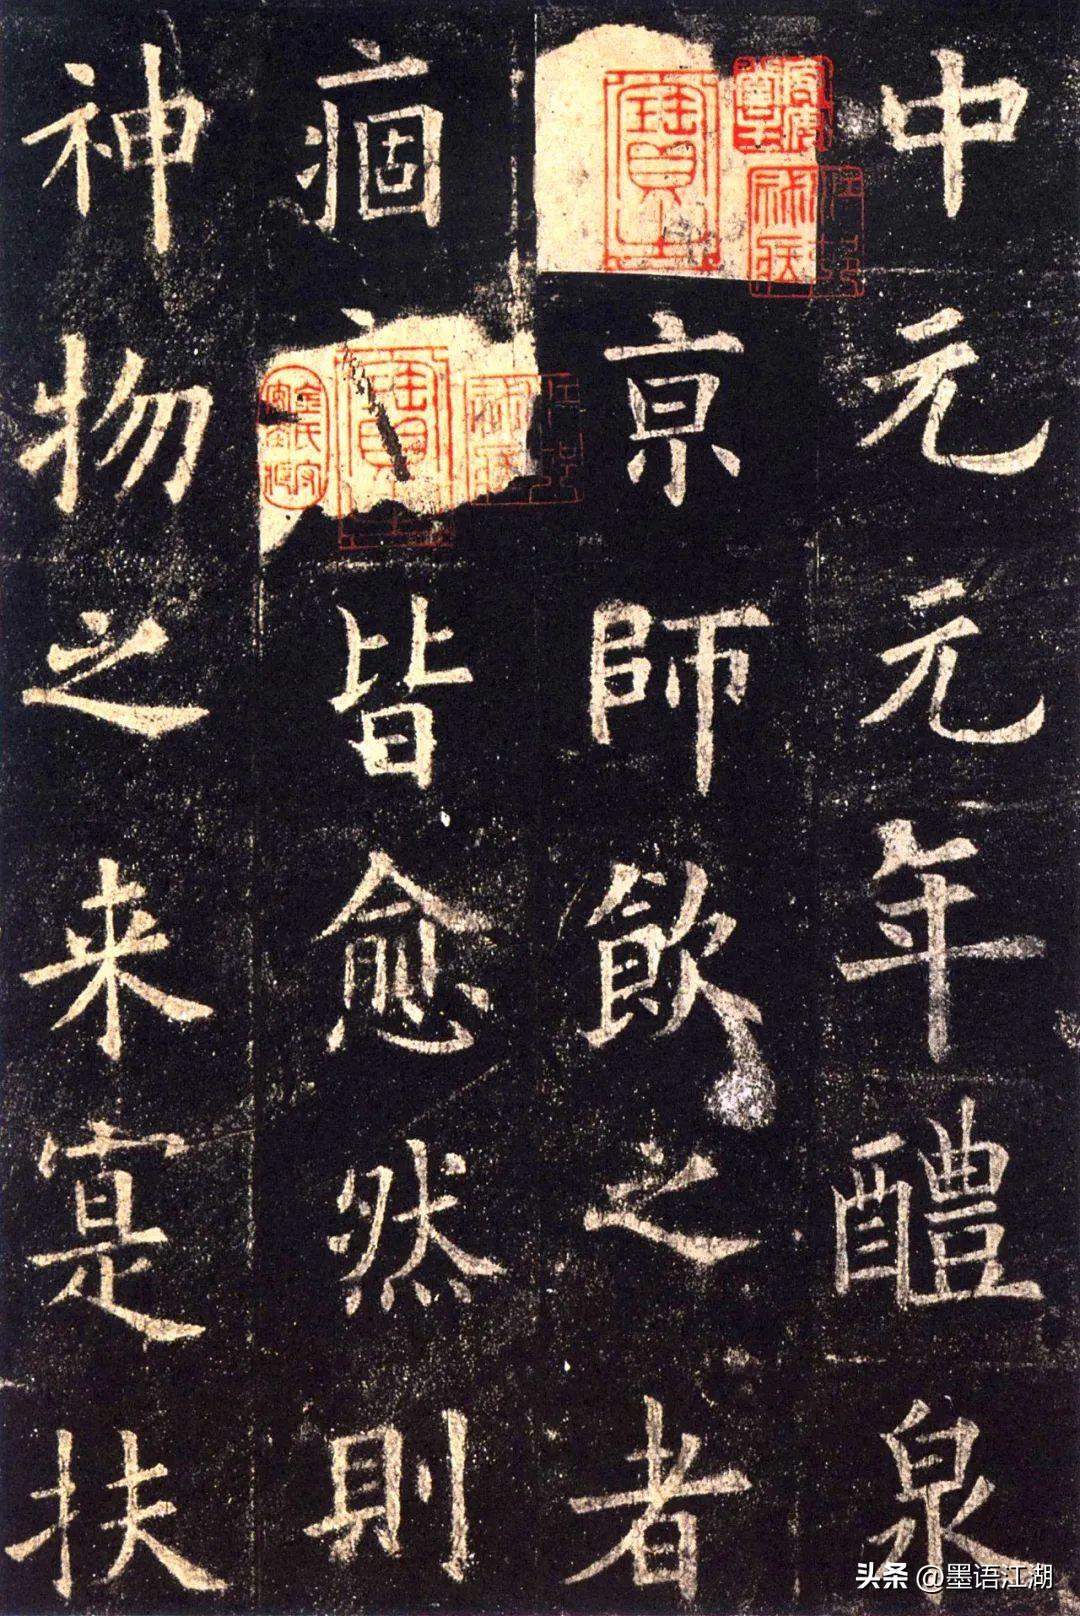 中元元年醴泉
京師飲之者
痼
皆愈然則
神物之来寔扶
头条 @墨语江湖